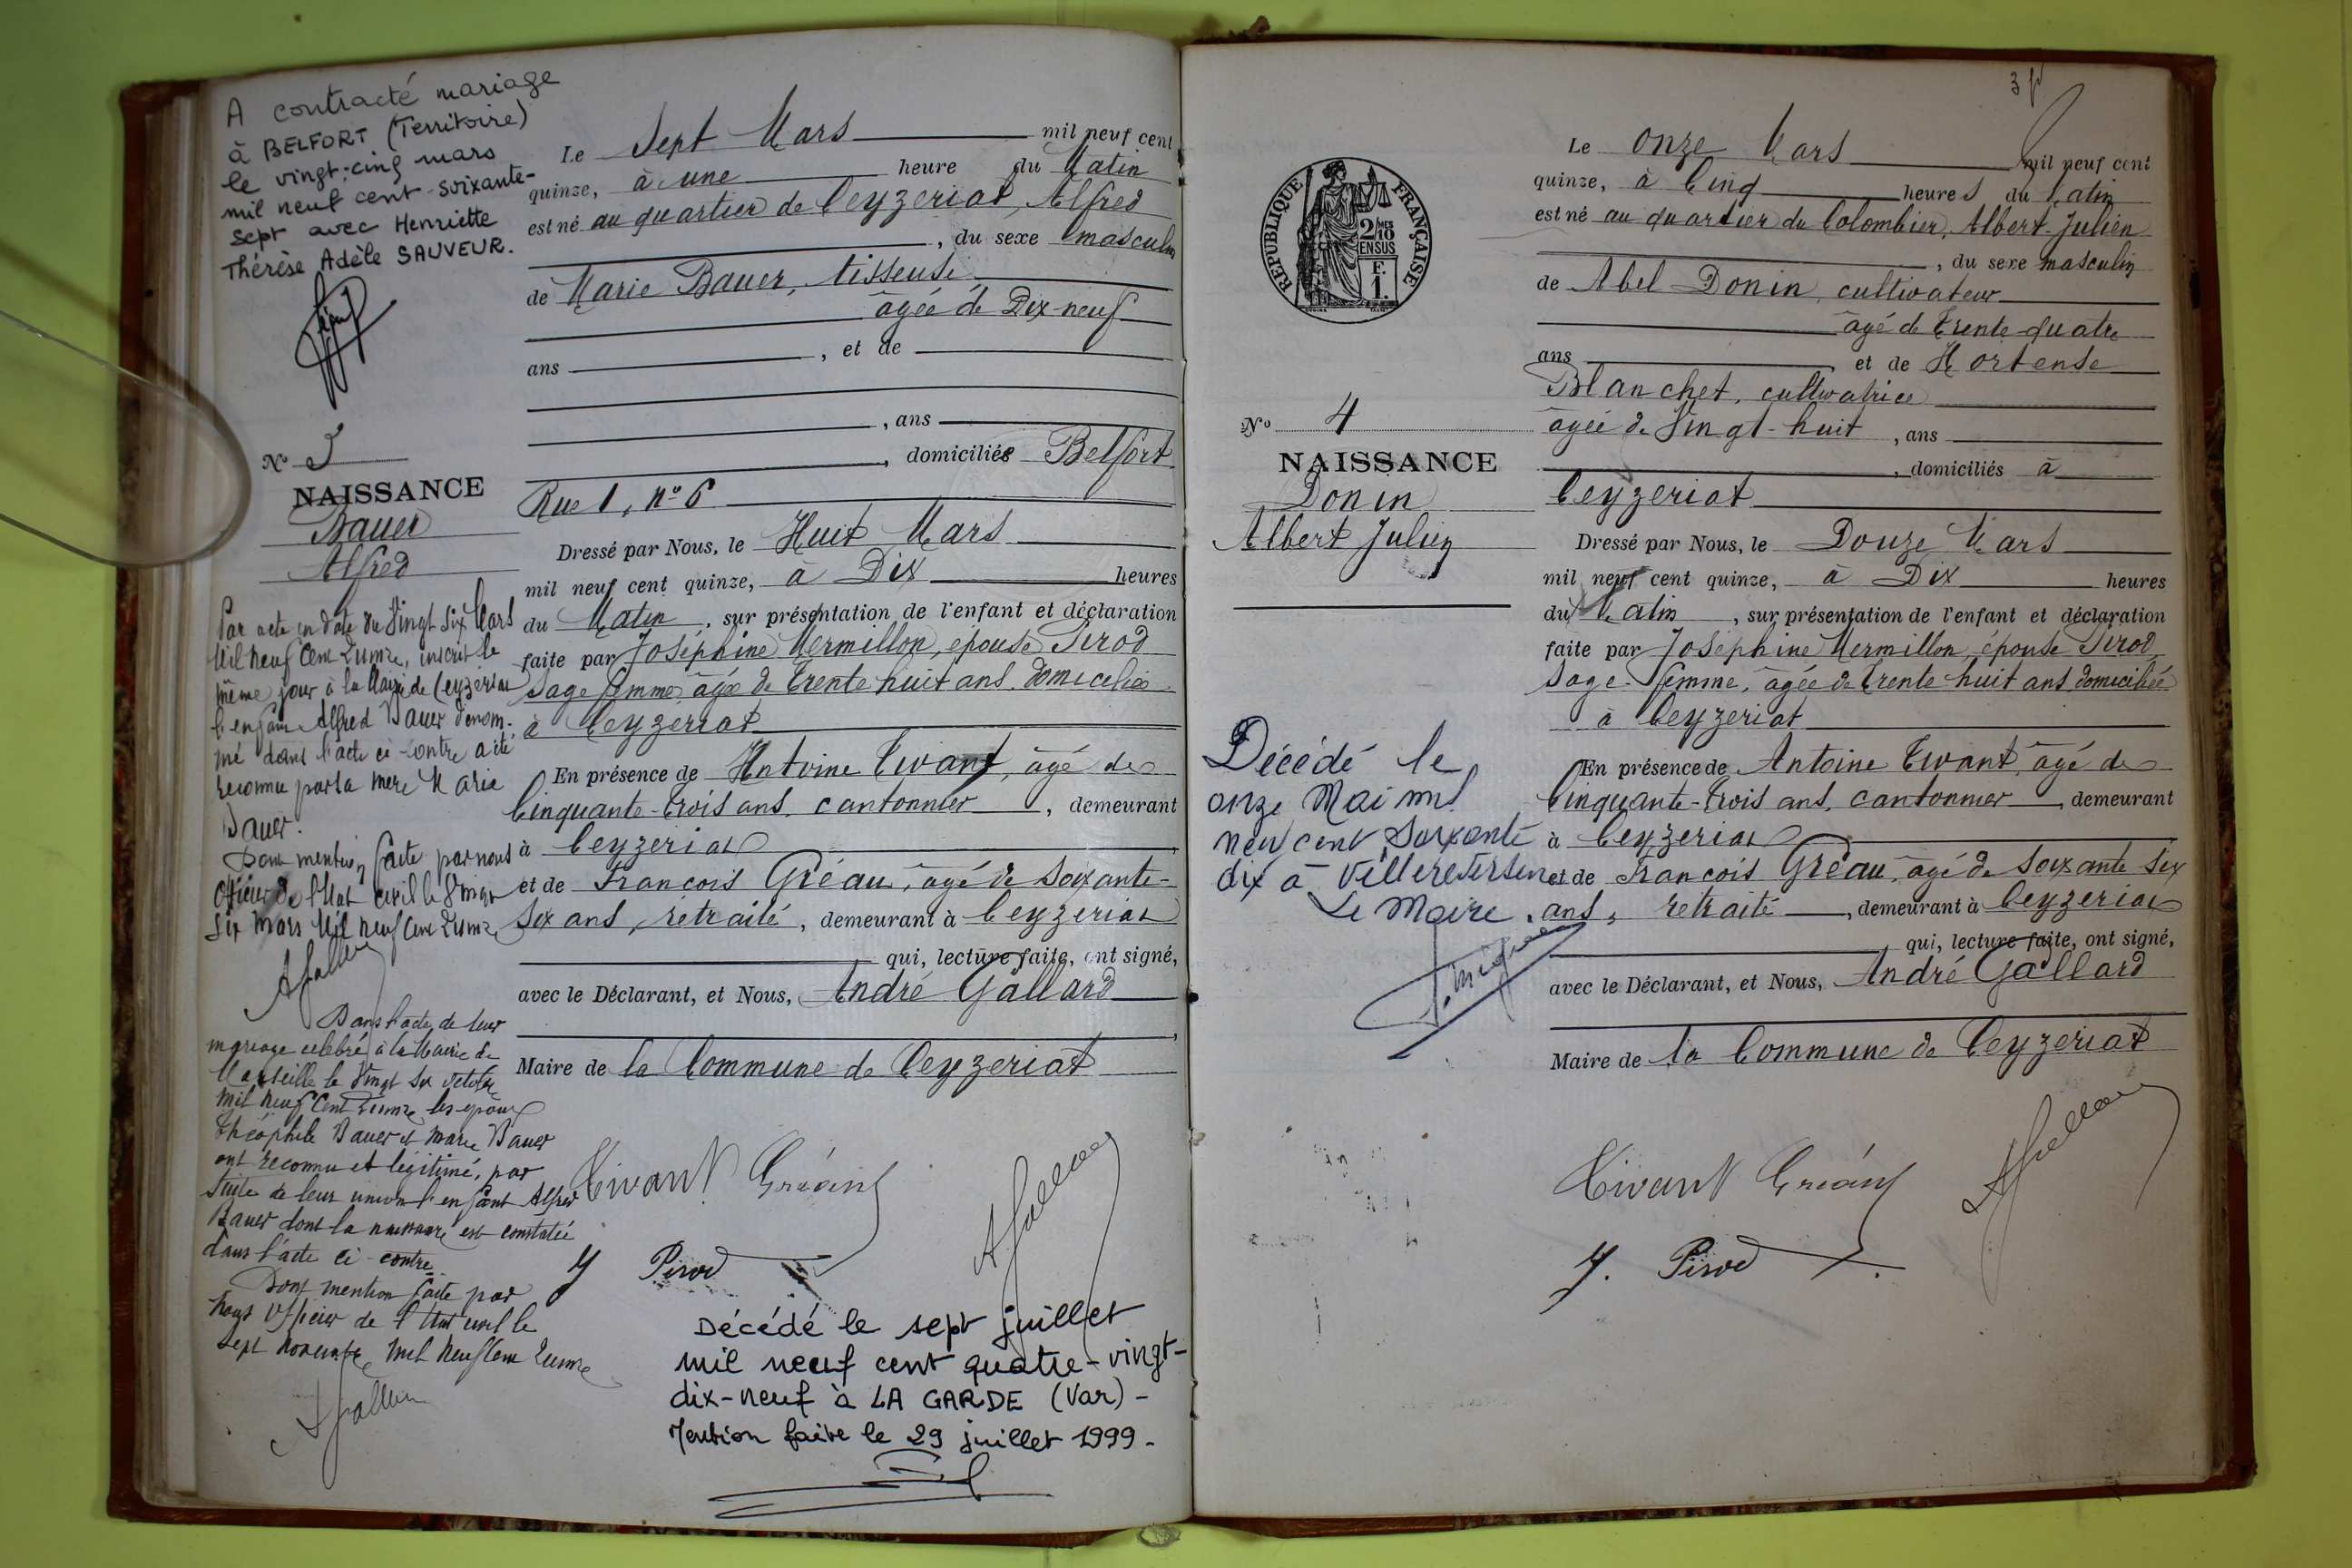 A contracté mariage
à BELFORT (Territoire)
le vingt-cinq mars
mil neuf cent soixante-
sept avec Henriette
Thérèse Adèle SAUVEUR.
No 3
NAISSANCE
Bauer
Alfred
Par acte en date du Vingt Six Mars
Mil neuf Cent Quinze, inscrit le
même jour à la Mairie de Ceyzeriat
l'enfant Alfred Bauer dénom-
mé dans l'acte ci-contre a été
reconnu par sa mère Marie
Bauer.
Dont mention faite par nous
Officier de l'Etat civil le Vingt
Six Mars Mil neuf Cent Quinze
Dans l'acte de leur
mariage célébré à la Mairie de
Marseille le Vingt Six Octobre
Mil Neuf Cent Quinze les époux
Théophile Bauer et Marie Bauer
ont reconnu et légitimé, par
suite de leur union l'enfant Alfred
Bauer dont la naissance est constatée
dans l'acte ci-contre
Dont mention faite par
Nous Officier de l'Etat civil le
Sept Novembre Mil Neuf Cent Quinze
Le Sept Mars mil neuf cent
quinze, à une heure du Matin
est né au quartier de Ceyzeriat, Alfred
, du sexe masculin
de Marie Bauer, tisseuse
âgée de Dix-neuf
ans , et de
, ans
, domiciliée Belfort
Rue 1, no 6
Dressé par Nous, le Huit Mars
mil neuf cent quinze, à Dix heures
du Matin, sur présentation de l'enfant et déclaration
faite par Joséphine Mermillon, épouse Pirod
Sage femme, âgée de Trente huit ans, domiciliée
à Ceyzeriat
En présence de Antoine Tivant, âgé de
Cinquante-trois ans, cantonnier , demeurant
à Ceyzeriat
et de François Gréau, âgé de Soixante-
Six ans, retraité, demeurant à Ceyzeriat
qui, lecture faite, ont signé,
avec le Déclarant, et Nous, André Gallard
Maire de la Commune de Ceyzeriat
Tivant Gréau AGallard
J Pirod
Décédé le sept juillet
mil neuf cent quatre-vingt-
dix-neuf à LA GARDE (Var) -
Mention faite le 29 juillet 1999 -
3
REPUBLIQUE FRANÇAISE
2/10 MES
EN SUS
F.
1.
No 4
NAISSANCE
Donin
Albert Julien
Décédé le
onze Mai mil
neuf cent soixante
dix à Villereversure
Le Maire.
Le onze Mars mil neuf cent
quinze, à Cinq heures du Matin
est né au quartier du Colombier, Albert-Julien
, du sexe masculin
de Abel Donin, cultivateur
âgé de Trente-quatre
ans et de Hortense
Blanchet, cultivatrice
âgée de Vingt-huit , ans
, domiciliés à
Ceyzeriat
Dressé par Nous, le Douze Mars
mil neuf cent quinze, à Dix heures
du Matin , sur présentation de l'enfant et déclaration
faite par Joséphine Mermillon, épouse Pirod
Sage-femme, âgée de Trente huit ans, domiciliée
à Ceyzeriat
En présence de Antoine Tivant, âgé de
Cinquante-trois ans, cantonnier , demeurant
à Ceyzeriat
et de François Gréau, âgé de Soixante Six
ans, retraité , demeurant à Ceyzeriat
qui, lecture faite, ont signé,
avec le Déclarant, et Nous, André Gallard
Maire de la Commune de Ceyzeriat
Tivant Gréau AGallard
J. Pirod